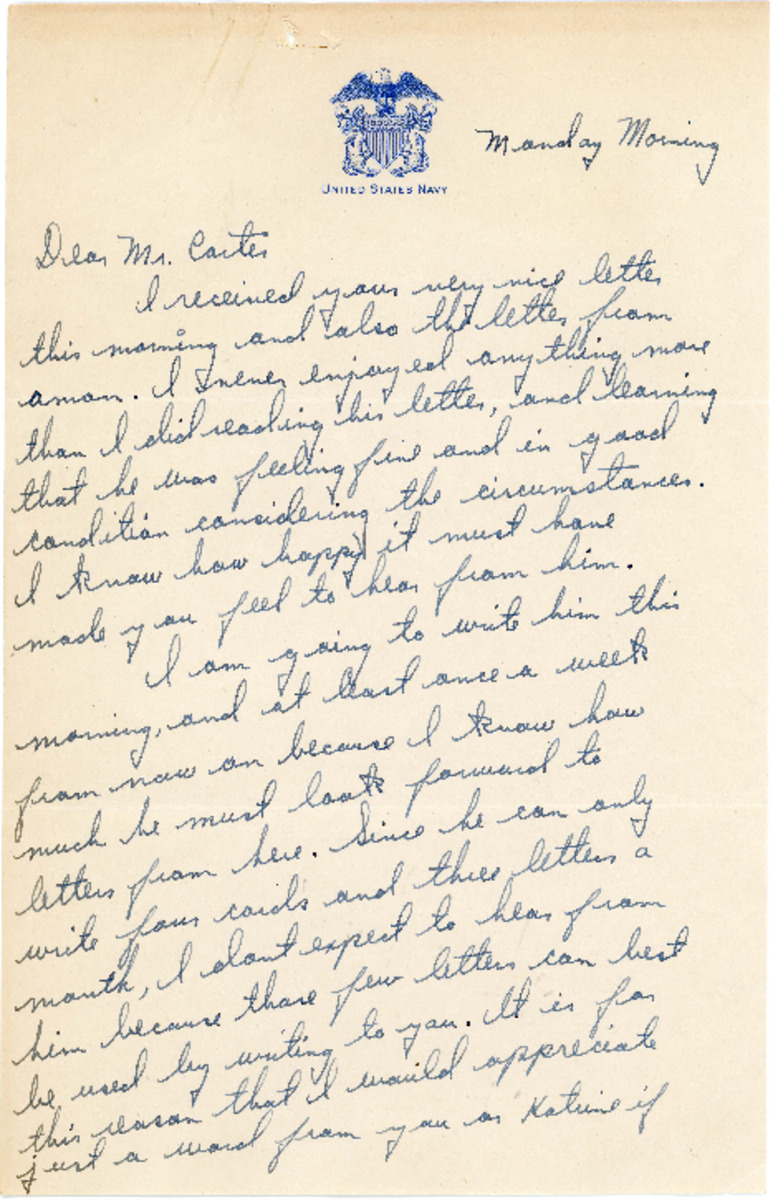 UNITED STATES NAVY
Monday Morning
Dear Mr. Carter
I received your very nice letter
this morning and also the letter from
Amon. I never enjoyed anything more
than I did reading his letter, and learning
that he was feeling fine and in good
condition considering the circumstances.
I know how happy it must have
made you feel to hear from him.
I am going to write him this
morning, and at least once a week
from now on because I know how
much he must look forward to
letters from here. Since he can only
write four cards and three letters a
month, I dont expect to hear from
him because those few letters can best
be used by writing to you. It is for
this reason that I would appreciate
just a word from you or Katrine if